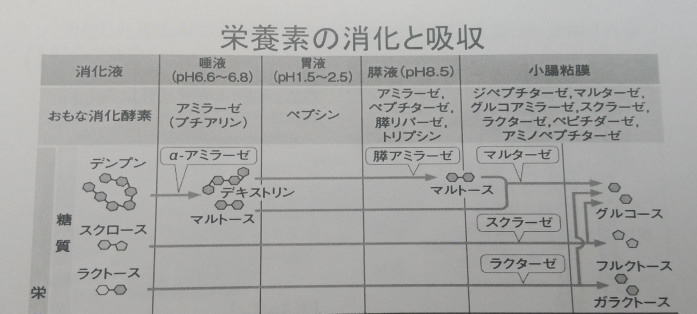 栄養素の消化と吸収
消化液
唾液
(pH6.6〜6.8)
胃液
(pH1.5〜2.5)
膵液(pH8.5)
小腸粘膜
おもな消化酵素
アミラーゼ
(プチアリン)
ペプシン
アミラーゼ,
ペプチターゼ,
膵リパーゼ,
トリプシン
ジペプチターゼ,マルターゼ,
グルコアミラーゼ,スクラーゼ,
ラクターゼ,ペピチダーゼ,
アミノペプチターゼ
栄
糖
質
デンプン
α-アミラーゼ
デキストリン
マルトース
膵アミラーゼ
マルトース
マルターゼ
グルコース
スクロース
スクラーゼ
フルクトース
ラクトース
ラクターゼ
ガラクトース